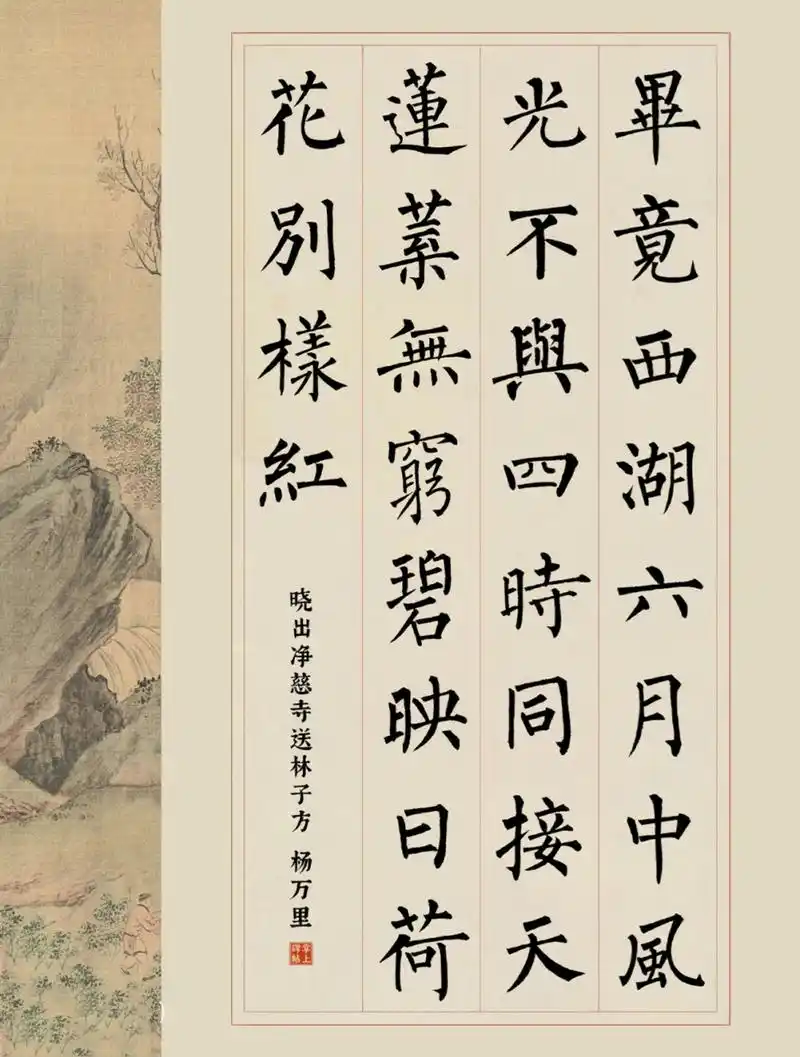 畢竟西湖六月中風
光不與四時同接天
蓮葉無窮碧映日荷
花別樣紅
晓出净慈寺送林子方 杨万里
掌上
碑帖